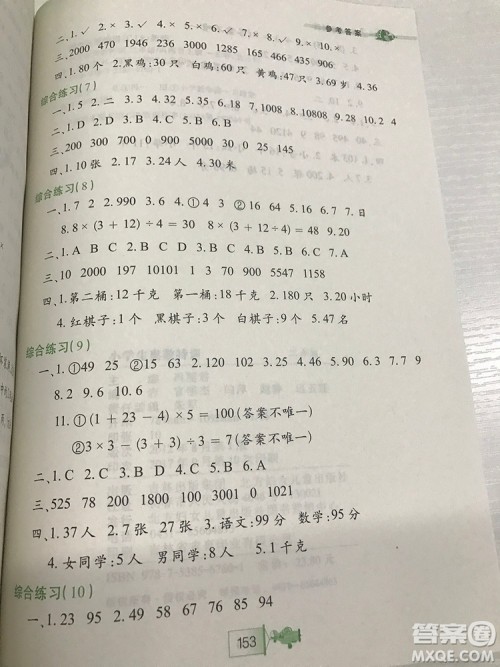 参考答案
二、1.✓ 2.× 3.✓ 4.× 5.× 6.✓ 7.× 8.✓ 9.× 10.×
三、2000 470 1946 236 3000 1285 165 435 906
四、1.80个 2.黑鸡:30只 白鸡:60只 黄鸡:47只 3.4 4.36
综合练习(7)
一、1.5 2.二 3.3 4.32 5.35 6.18 7.1008 8.10808 9.20 4
二、1.D 2.D 3.C 4.B 5.C 6.D
三、200 300 700 0 900 5000 30 0 25
四、1.10张 2.17 3.24人 4.30米
综合练习(8)
一、1.7 2 2.990 3.6 4.①4 ②16 5.16 6.13 7.日
8.8×(3+12)÷4=30 8×(3+12÷4)=48 9.20
二、1.A B C 2.D 3.C 4.C 5.A 6.C
三、10 2000 197 10101 1 3 900 5547 1158
四、1.第二桶:12千克 第一桶:18千克 2.180只 3.20小时
4.红棋子:1个 黑棋子:3个 白棋子:9个
综合练习(9)
一、1.①49 25 ②15 63 2.19 100 3.23 4.6 5.6 6.4 7.9
8.2 9.6 10.6
11.①(1+23-4)×5=100(答案不唯一)
②3×3-(3+3)÷3=7(答案不唯一)
二、1.C 2.C 3.A 4.C 5.B 6.A
三、525 78 200 1800 100 3001 0 1021
四、1.37人 2.7张 27张 3.语文:99分 数学:95分
4.女同学:5人 男同学:8人 5.1千克
综合练习(10)
一、1.23 95 2.49 58 67 76 85 94
153
答案圈
MXQE.COM